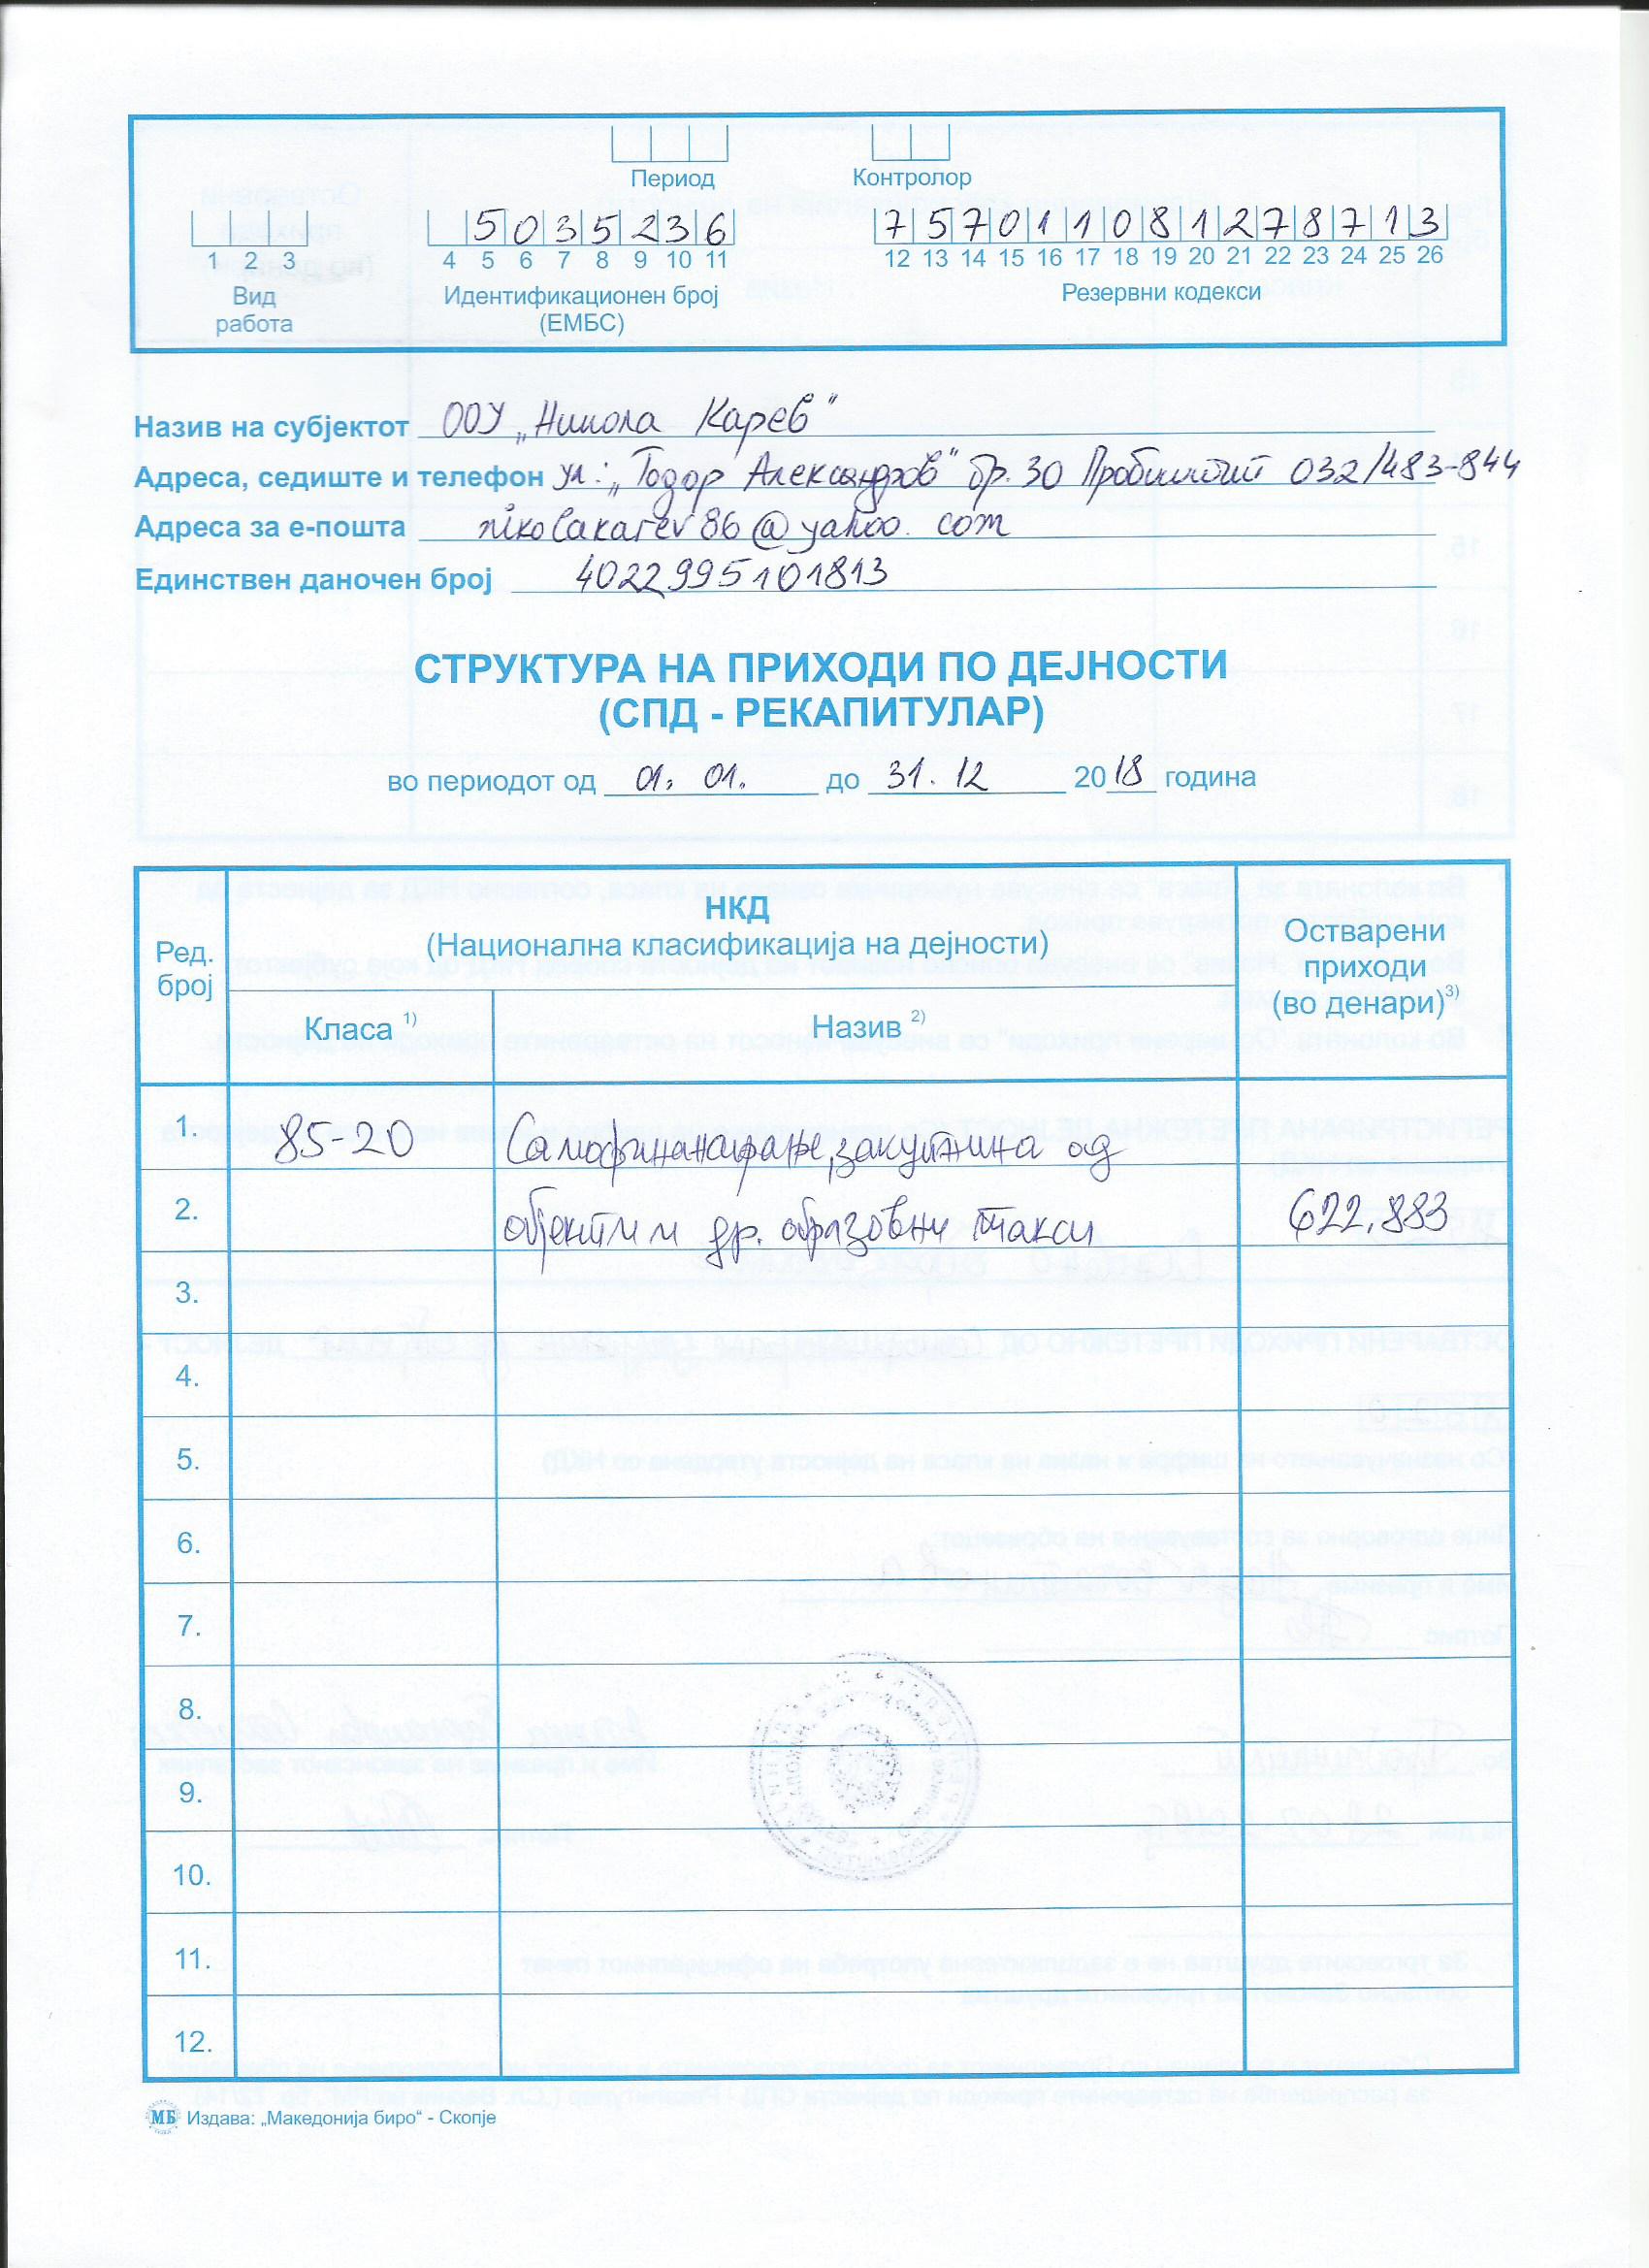 Период Контролор
5035236 757011081278713
1 2 3 4 5 6 7 8 9 10 11 12 13 14 15 16 17 18 19 20 21 22 23 24 25 26
Вид работа Идентификационен број (ЕМБС) Резервни кодекси
Назив на субјектот ООУ „Никола Карев"
Адреса, седиште и телефон ул: „Тодор Александров" бр. 30 Пробиштип 032/483-844
Адреса за е-пошта nikolakarev86@yahoo.com
Единствен даночен број 4022995101813
СТРУКТУРА НА ПРИХОДИ ПО ДЕЈНОСТИ
(СПД - РЕКАПИТУЛАР)
во периодот од 01. 01. до 31. 12 2018 година
Ред. број
НКД
(Национална класификација на дејности)
Класа 1) Назив 2)
Остварени
приходи
(во денари)3)
1. 85-20 Самофинансирање, закупнина од
2. објекти и др. образовни такси 622.883
3.
4.
5.
6.
7.
8.
9.
10.
11.
12.
МБ Издава: „Македонија биро“ - Скопје